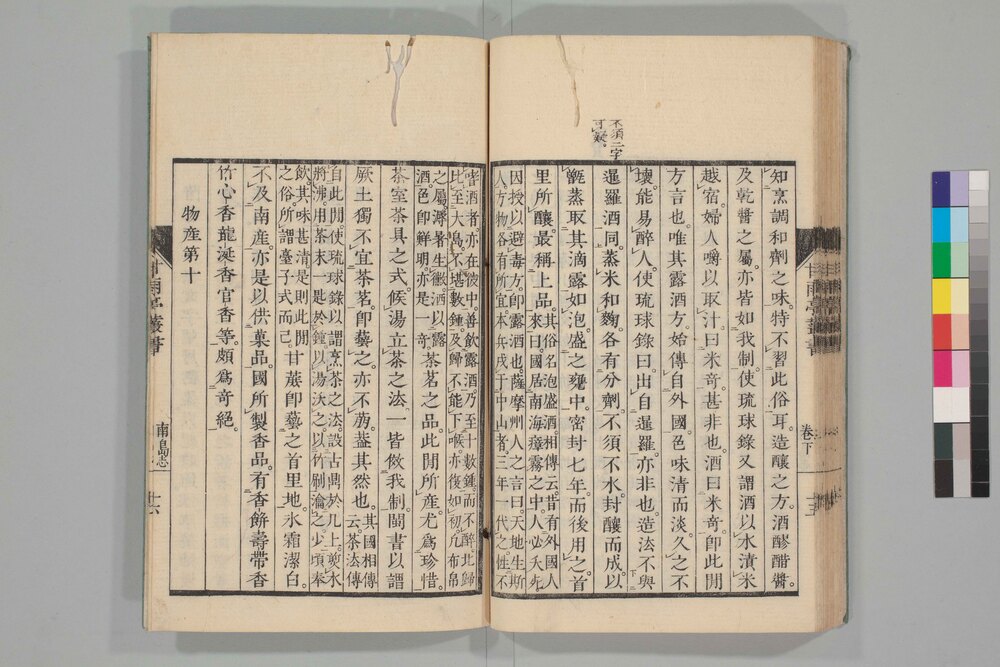 不須二字
可疑。
知烹調和劑之味。特不習此俗耳。造釀之方。酒醪醋醬。
及乾醬之屬。亦皆如我制。使琉球錄又謂酒以水漬米
越宿。婦人嚼以取汁。曰米奇。甚非也。酒曰米奇。卽此間
方言也。唯其露酒方。始傳自外國。色味清而淡。久之不
壞。能易醉人。使琉球錄曰。出自暹羅。亦非也。造法不與
暹羅酒同。蒸米和麴。各有分劑。不須不水。封釀而成。以
甑蒸取其滴露如泡。盛之甕中。密封七年。而後用之。首
里所釀。最稱上品。
其俗名泡盛酒。相傳云。昔有外國人
來。曰國居南海瘴霧之中。人必夭死。
因授以避毒方。卽露酒也。薩摩州人之言曰。天地生斯
人。方物各有所宜。本兵戍于中山者。三年一代之。性不
嗜酒者。亦在彼中。善飲露酒。乃至十數鍾。而不醉。北歸
比至大島。不堪數鍾。及歸不能下喉。亦復如初。凡布帛
之屬。溽暑生黴。酒以露
酒。色卽鮮明。亦是一奇。
茶茗之品。此間所産。尤爲珍惜。
茶室茶具之式。候湯立茶之法。一皆倣我制。閩書以謂
厥土獨不宜茶茗。卽藝之。亦不萠。蓋其然也。
其國相傳
云。茶法傳
自此間。使琉球錄以謂烹茶之法。設古鼎於几上。煎水
將沸。用茶末一匙於鍾。以湯沃之。以竹刷瀹之。少頃奉
飲。其味甚清。是則此間
之俗。所謂臺子式而已。
甘蔗卽藝之首里地。氷霜潔白。
不及南産。亦是以供菓品。國所製香品。有香餅壽帶香
竹心香龍涎香官香等。頗爲奇絕。
物産第十
甘雨亭叢書
卷下
十五
甘雨亭叢書
南島志
十六